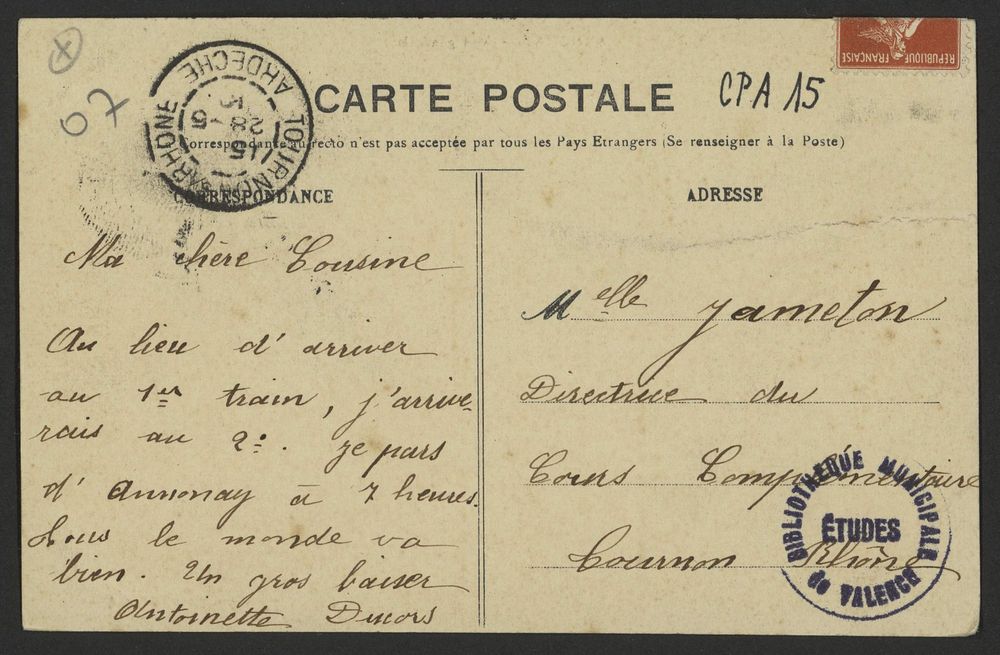 07
CARTE POSTALE
CPA 15
REPUBLIQUE FRANÇAISE
Correspondance au recto n'est pas acceptée par tous les Pays Etrangers (Se renseigner à la Poste)
TOURNON-S-RHONE
ARDECHE
15
28 - 5
CORRESPONDANCE
Ma chère Cousine
Au lieu d'arriver
au 1er train, j'arrive-
rais au 2e. Je pars
d'Annonay à 7 heures.
Tous le monde va
bien. Un gros baiser
Antoinette
ADRESSE
Melle Jameton
Directrice du
Cours Complémentaire
Tournon Rhône
BIBLIOTHÈQUE MUNICIPALE
ÉTUDES
de VALENCE